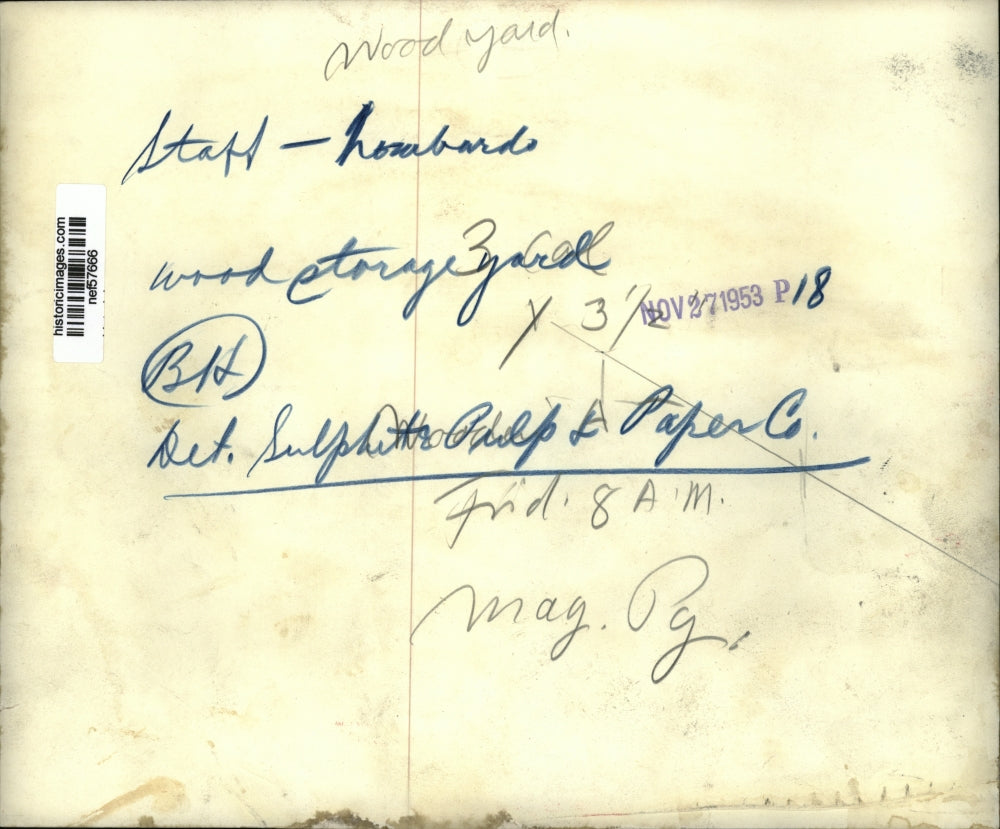 Wood yard.
Staff — Lombardo
3 col
wood storage yard
x 3 1/2
NOV 27 1953 P18
BH
Det. Sulphite Pulp & Paper Co.
Frid. 8 A.M.
Mag. Pg.
historicimages.com
nef57666